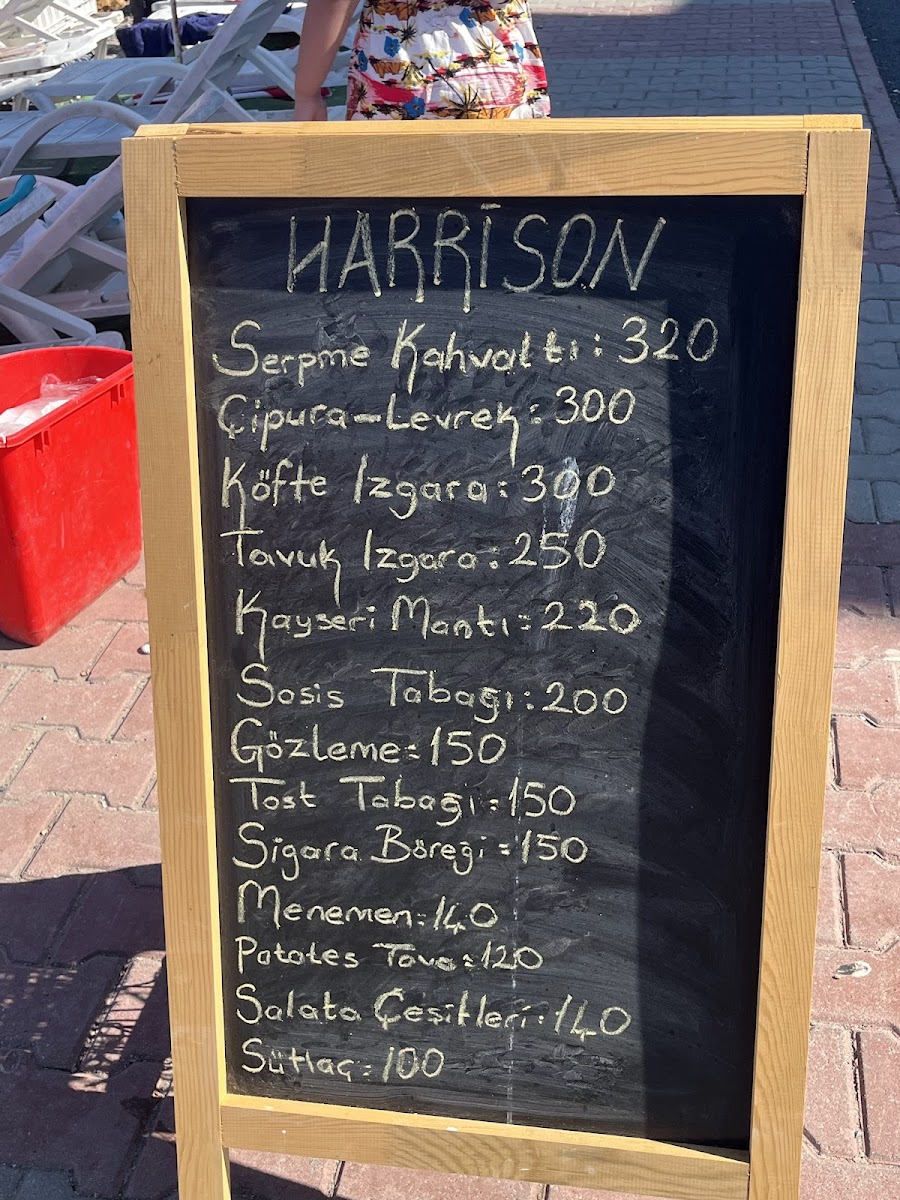 HARRİSON
Serpme Kahvaltı: 320
Çipura-Levrek: 300
Köfte Izgara: 300
Tavuk Izgara: 250
Kayseri Mantı: 220
Sosis Tabağı: 200
Gözleme: 150
Tost Tabağı: 150
Sigara Böreği: 150
Menemen: 140
Patates Tava: 120
Salata Çeşitleri: 140
Sütlaç: 100